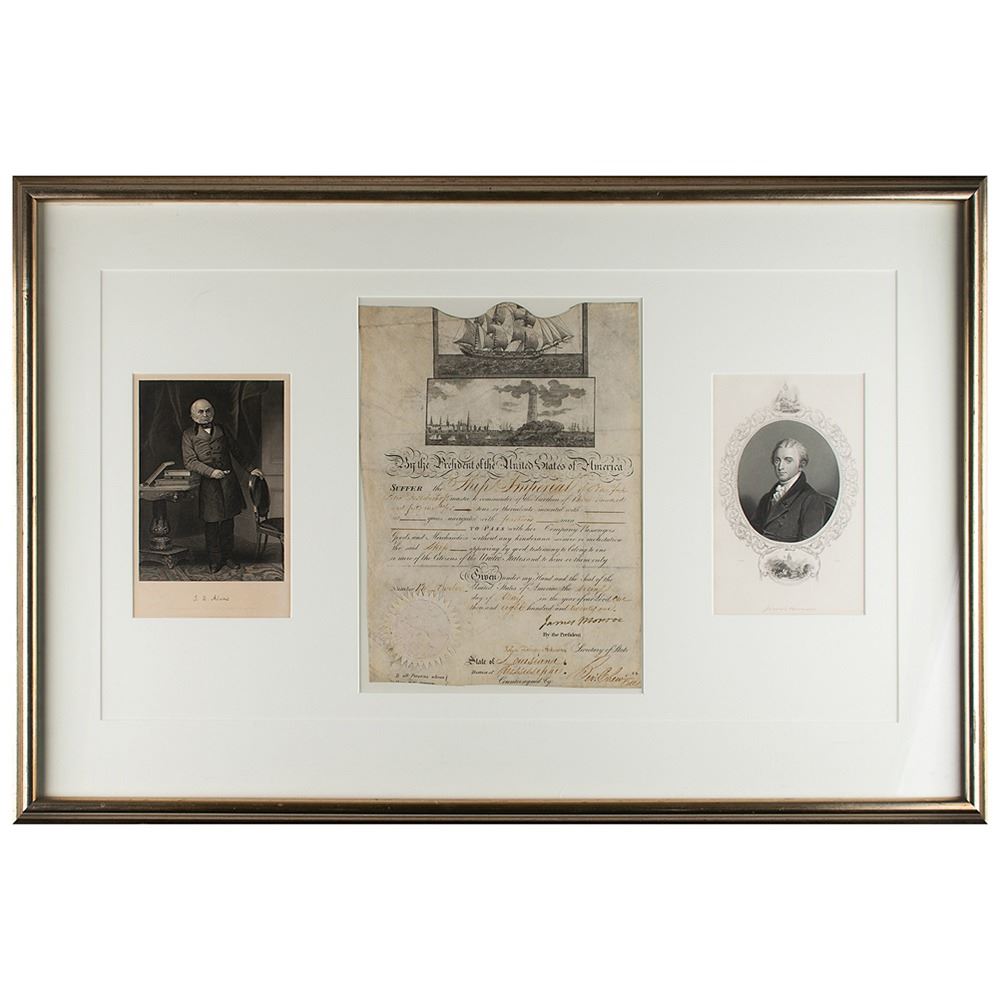 By the President of the United States of America
SUFFER the Ship Imperial of New York
master or commander of the burthen of three hundred
and tons or thereabouts mounted with
no guns navigated with fourteen men
TO PASS with her Company Passengers
Goods and Merchandize without any hinderance seisure or molestation
the said Ship appearing by good testimony to belong to one
or more of the Citizens of the United States and to him or them only
Given under my Hand and the Seal of the
Number United States of America the
day of May in the year of our Lord one
thousand eight hundred and twenty one.
James Monroe
By the President
John Quincy Adams Secretary of State
State of Louisiana
District of Mississippi
Countersigned by
To all Persons whom
J. Q. Adams
James Monroe